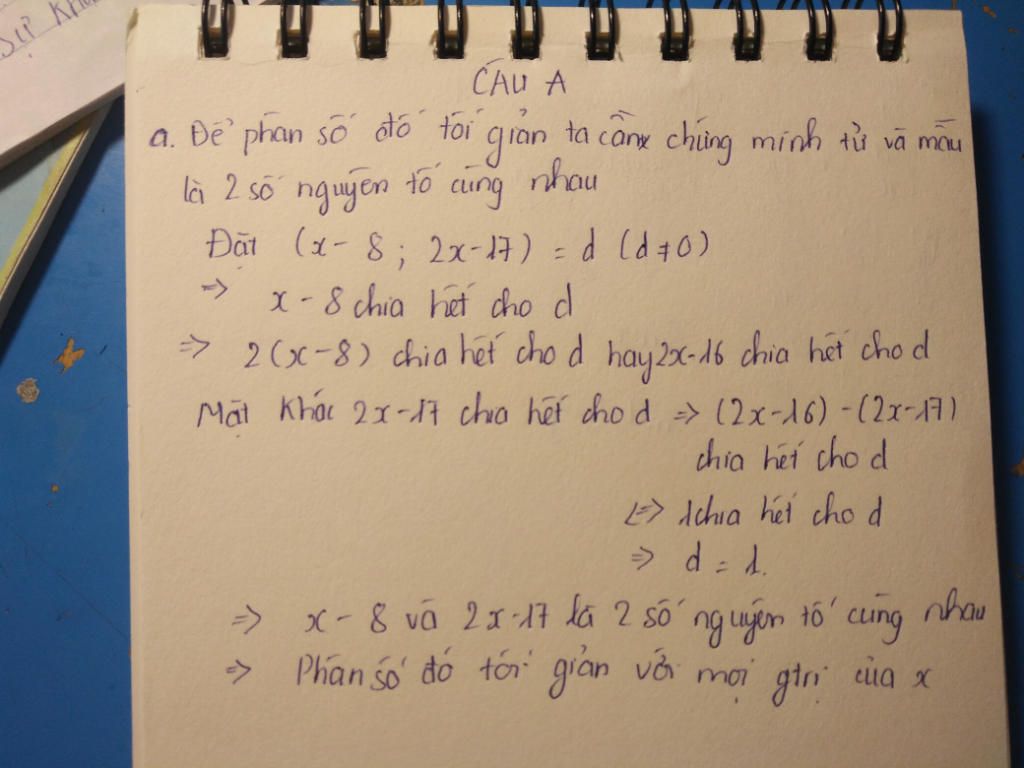 Sự Kh
CÂU A
a. Để phân số đó tối giản ta cần chứng minh tử và mẫu
là 2 số nguyên tố cùng nhau
Đặt (x - 8 ; 2x-17) = d (d ≠ 0)
=> x - 8 chia hết cho d
=> 2(x-8) chia hết cho d hay 2x-16 chia hết cho d
Mặt khác 2x-17 chia hết cho d => (2x-16) - (2x-17)
chia hết cho d
<=> 1 chia hết cho d
=> d = 1.
=> x - 8 và 2x-17 là 2 số nguyên tố cùng nhau
=> Phân số đó tối giản với mọi gtrị của x